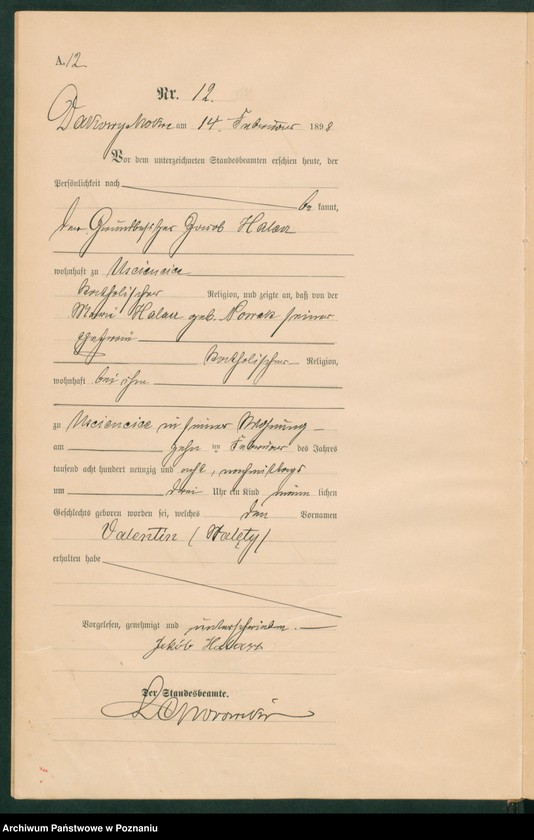 A. 12.
Nr. 12.
Dakowy Mokre am 14. Februar 1898
Vor dem unterzeichneten Standesbeamten erschien heute, der
Persönlichkeit nach
be kannt,
der Grundbesitzer Jacob Halas
wohnhaft zu Uscienciee
katholischer Religion, und zeigte an, daß von der
Marie Halas geb. Nowak seiner
Ehefrau
katholischer Religion,
wohnhaft bei ihm
zu Uscienciee in seiner Wohnung
am zehn ten Februar des Jahres
tausend acht hundert neunzig und acht, nachmittags
um drei Uhr ein Kind männ lichen
Geschlechts geboren worden sei, welches den Vornamen
Valentin (Walęty)
erhalten habe
Vorgelesen, genehmigt und unterschrieben.
Jakób Halasz
Der Standesbeamte.
Archiwum Państwowe w Poznaniu